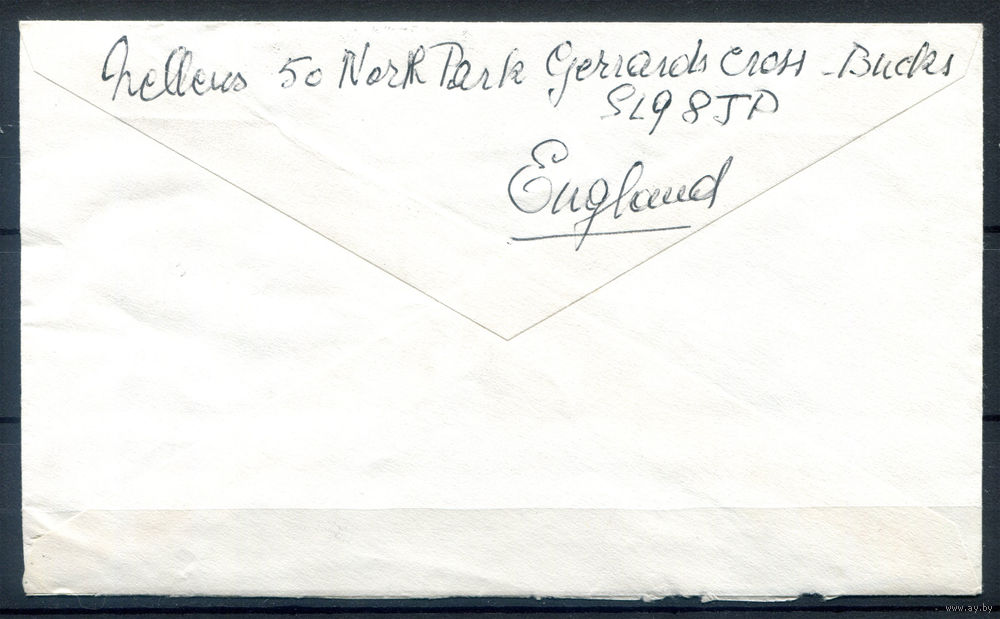 50 North Park Gerrards Cross - Bucks
SL9 8JP
England
www.ay.by